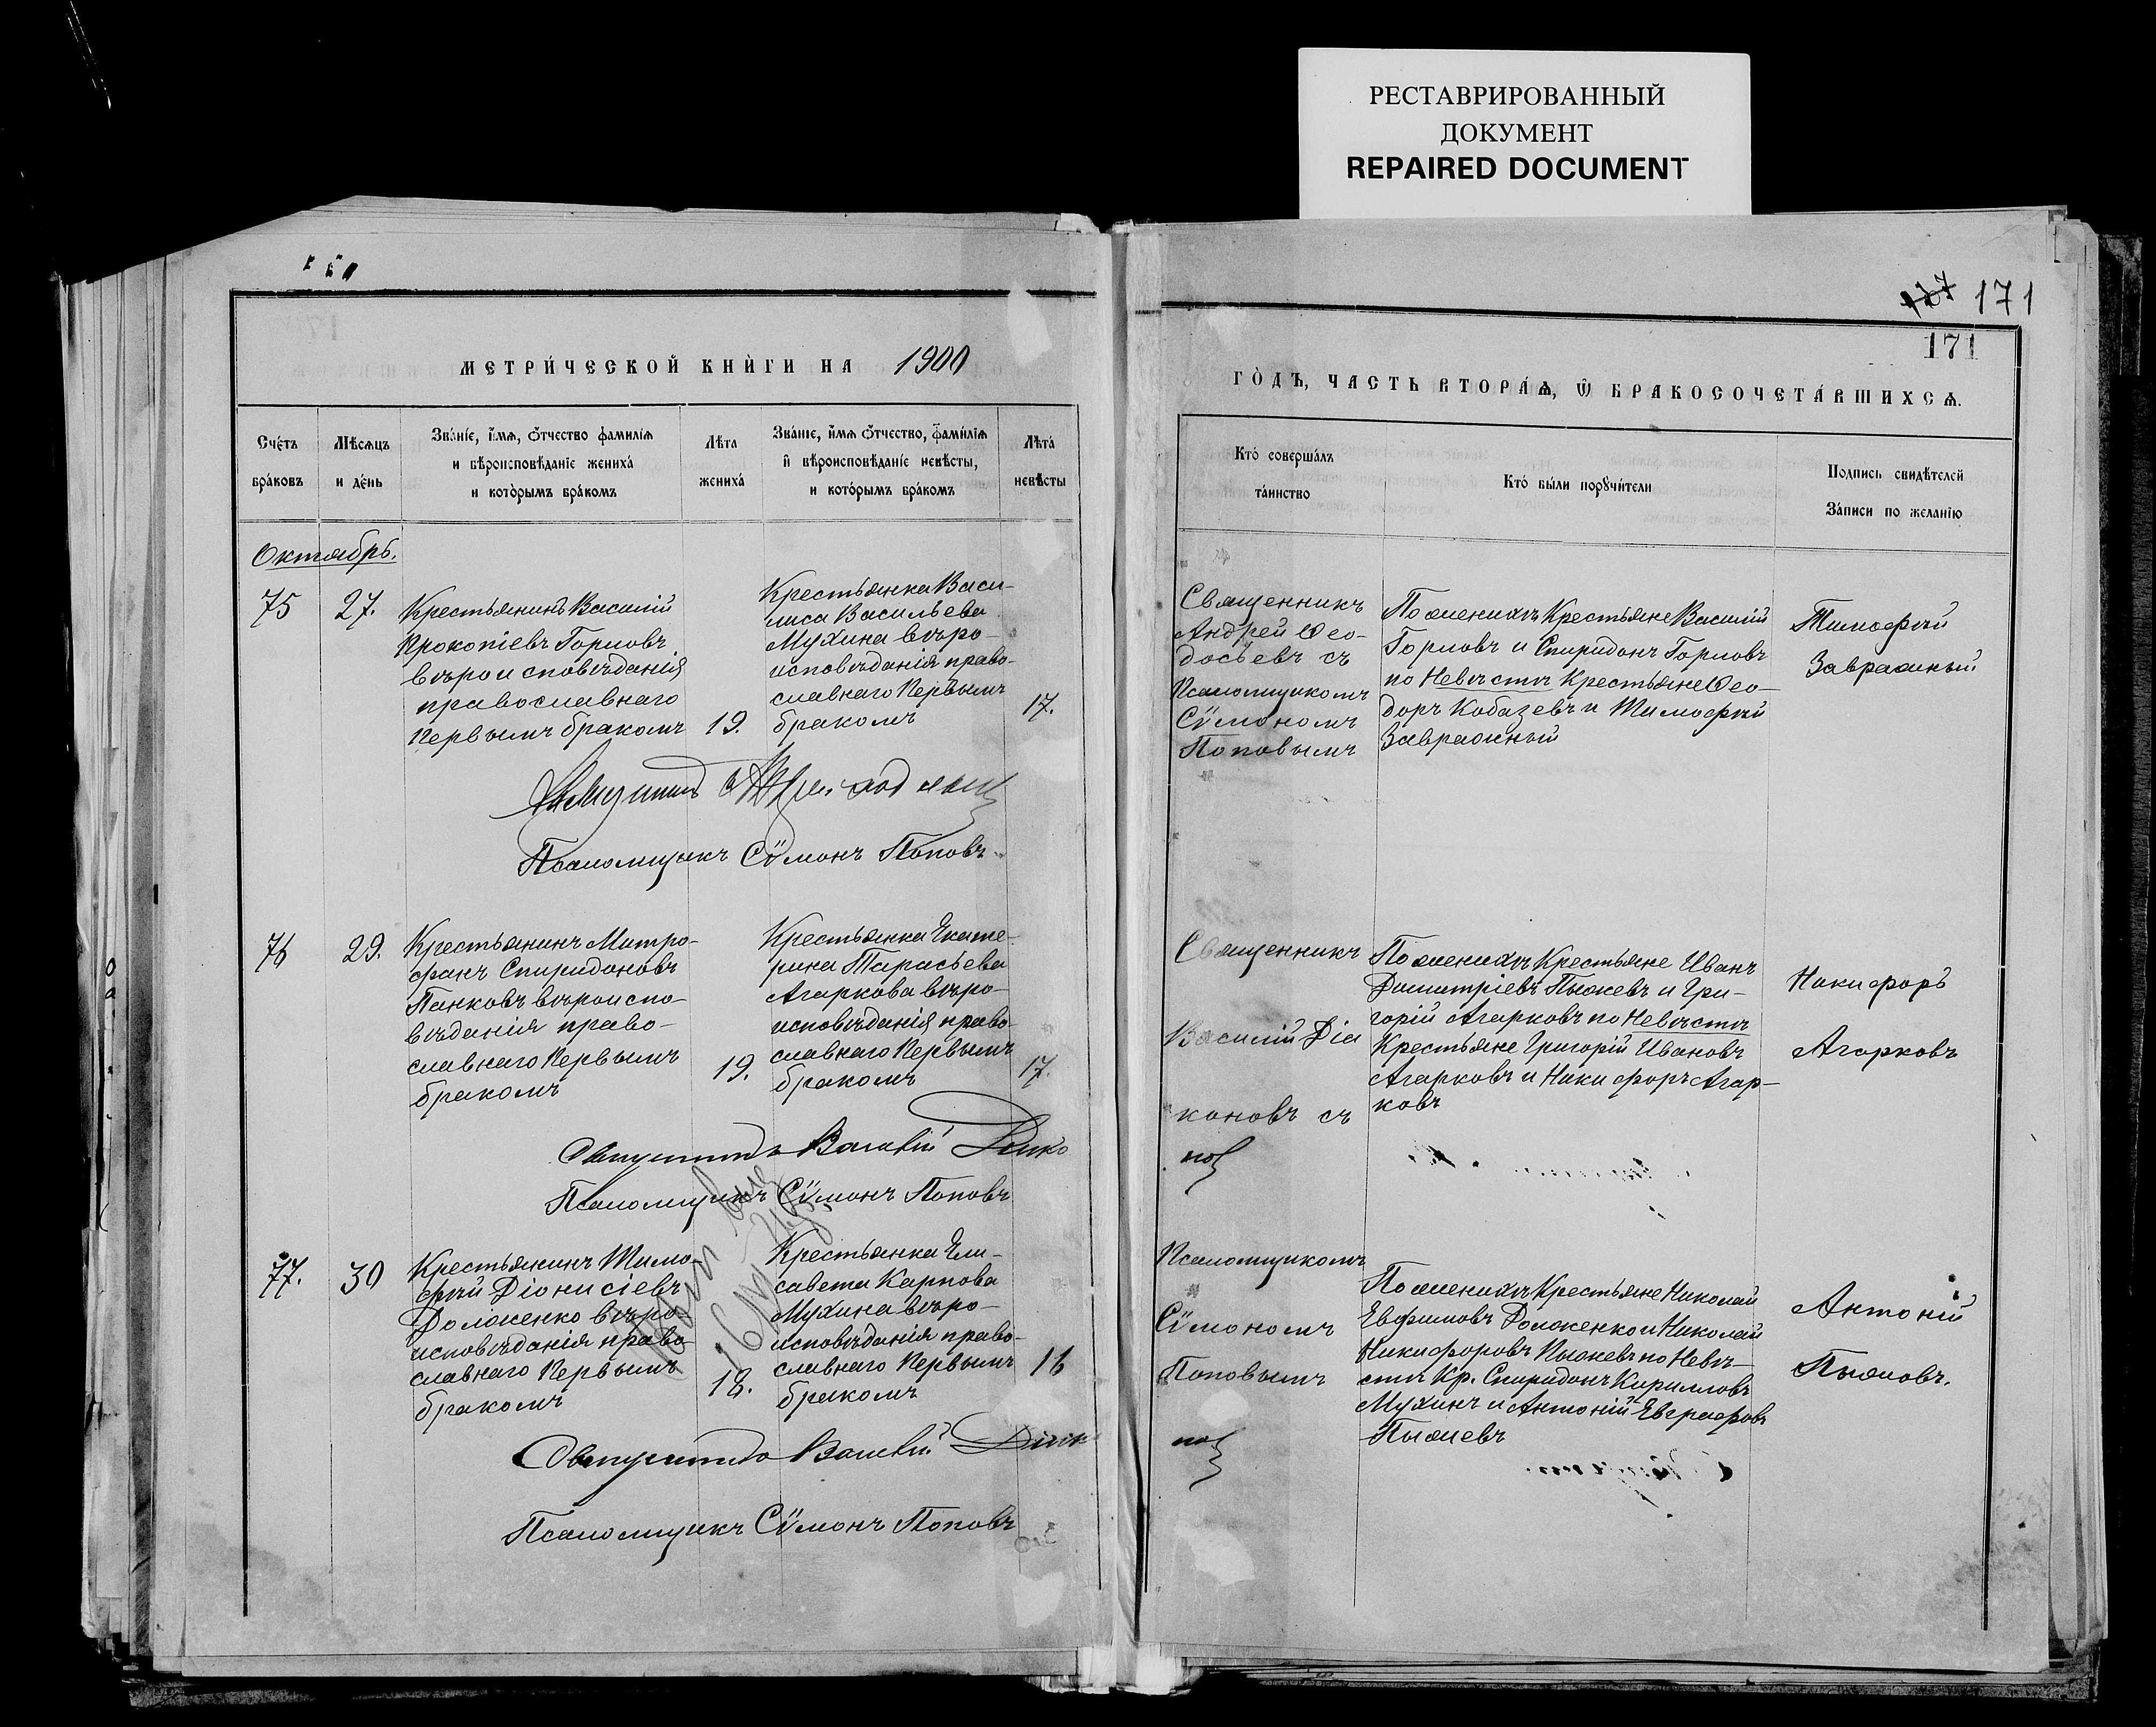 РЕСТАВРИРОВАННЫЙ
ДОКУМЕНТ
REPAIRED DOCUMENT
171
171
МЕТРИ́ЧЕСКОЙ КНИ́ГИ НА 1900
Сче́тъ
бра́ковъ
Мѣ́сѧцъ
и де́нь
Зва́нїе, и́мѧ, ѻ҆́тчество фамилїѧ
и вѣроисповѣ́данїе жениха́
и кото́рымъ бра́комъ
Лѣ́та
жениха́
Зва́нїе, и́мѧ ѻ҆́тчество, фами́лїѧ
и҆ вѣроисповѣ́данїе невѣ́сты,
и кото́рымъ бра́комъ
Лѣ́та
невѣ́сты
Октябрь.
75
27.
Крестьянинъ Василій
Прокопіевъ Горловъ
вѣроисповѣданія
православнаго
первымъ бракомъ
19.
Крестьянка Васи-
лиса Васильева
Мухина вѣро-
исповѣданія право-
славнаго первымъ
бракомъ
17.
Псаломщикъ Сѷмонъ Поповъ
76
29.
Крестьянинъ Митро-
фанъ Спиридоновъ
Панковъ вѣроиспо-
вѣданія право-
славнаго первымъ
бракомъ
19.
Крестьянка Екате-
рина Тарасьева
Агаркова вѣро-
исповѣданія право-
славнаго первымъ
бракомъ
17.
Василій
Псаломщикъ Сѷмонъ Поповъ
77.
30
Крестьянинъ Тимо-
фей Діонисіевъ
Долженко вѣро-
исповѣданія право-
славнаго первымъ
бракомъ
18.
Крестьянка Ели-
савета Карпова
Мухина вѣро-
исповѣданія право-
славнаго первымъ
бракомъ
16
Василій
Псаломщикъ Сѷмонъ Поповъ
ГО́ДЪ, ЧАСТЬ ВТОРА́Ѧ, Ѽ БРАКОСОЧЕТА́ВШИХСѦ.
Кто́ соверша́лъ
та́инство
Кто́ бы́ли порꙋчи́тели
Подпись свидѣ́телей
За́писи по жела́нїю
Священникъ
Андрей Ѳео-
досьевъ съ
Псаломщикомъ
Сѷмономъ
Поповымъ
По женихѣ Крестьяне Василій
Горловъ и Спиридонъ Горловъ
по Невѣстѣ Крестьяне Ѳео-
доръ Кобазевъ и Тимофей
Завражный
Тимофей
Завражный
Священникъ
Василій Діа
коновъ съ
Псаломщикомъ
Сѷмономъ
Поповымъ
По женихѣ Крестьяне Иванъ
Димитріевъ Пыжевъ и Гри-
горій Агарковъ по Невѣстѣ
Крестьяне Григорій Ивановъ
Агарковъ и Никифоръ Агар-
ковъ
Никифоръ
Агарковъ
По женихѣ Крестьяне Николай
Евфимовъ Долженко и Николай
Никифоровъ Пыжевъ по Невѣ-
стѣ Кр. Спиридонъ Кирилловъ
Мухинъ и Антоній Евграфовъ
Антоній